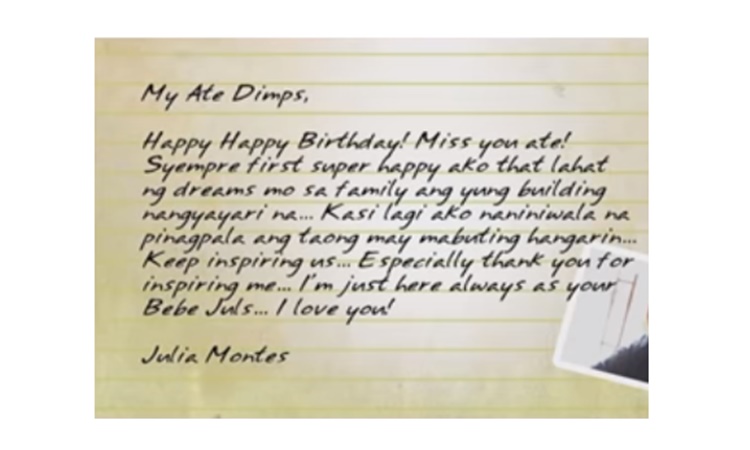 My Ate Dimps,
Happy Happy Birthday! Miss you ate!
Syempre first super happy ako that lahat
ng dreams mo sa family ang yung building
nangyayari na... Kasi lagi ako naniniwala na
pinagpala ang taong may mabuting hangarin...
Keep inspiring us... Especially thank you for
inspiring me... I'm just here always as your
Bebe Juls... I love you!
Julia Montes